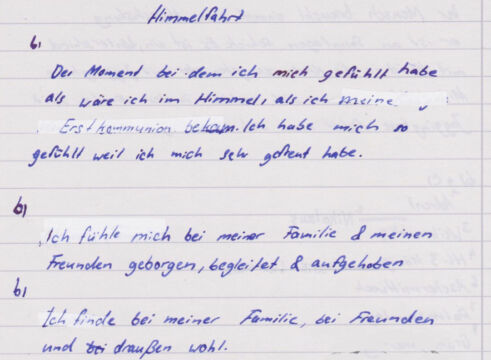 Himmelfahrt
b)
Der Moment bei dem ich mich gefühlt habe
als wäre ich im Himmel, als ich meine
Erstkommunion bekam. Ich habe mich so
gefühlt weil ich mich sehr gefreut habe.
b)
Ich fühle mich bei meiner Familie & meinen
Freunden geborgen, begleitet & aufgehoben
b)
Ich finde bei meiner Familie, bei Freunden
und draußen wohl.